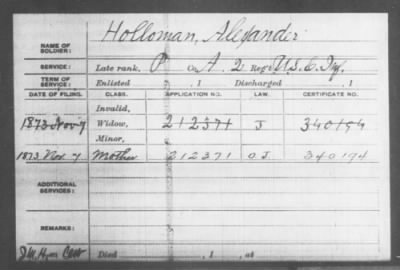 Holloman, Alexander
NAME OF SOLDIER:
SERVICE: Late rank, P Co. A, 2 Reg't U.S.C. Inf.
TERM OF SERVICE: Enlisted , 1 Discharged , 1
DATE OF FILING. CLASS. APPLICATION NO. LAW. CERTIFICATE NO.
Invalid,
1873 Nov 7 Widow, 212371 J 340194
Minor,
1873 Nov. 7 Mother 212371 O.J. 340194
ADDITIONAL SERVICES:
REMARKS:
Died , 1 , at